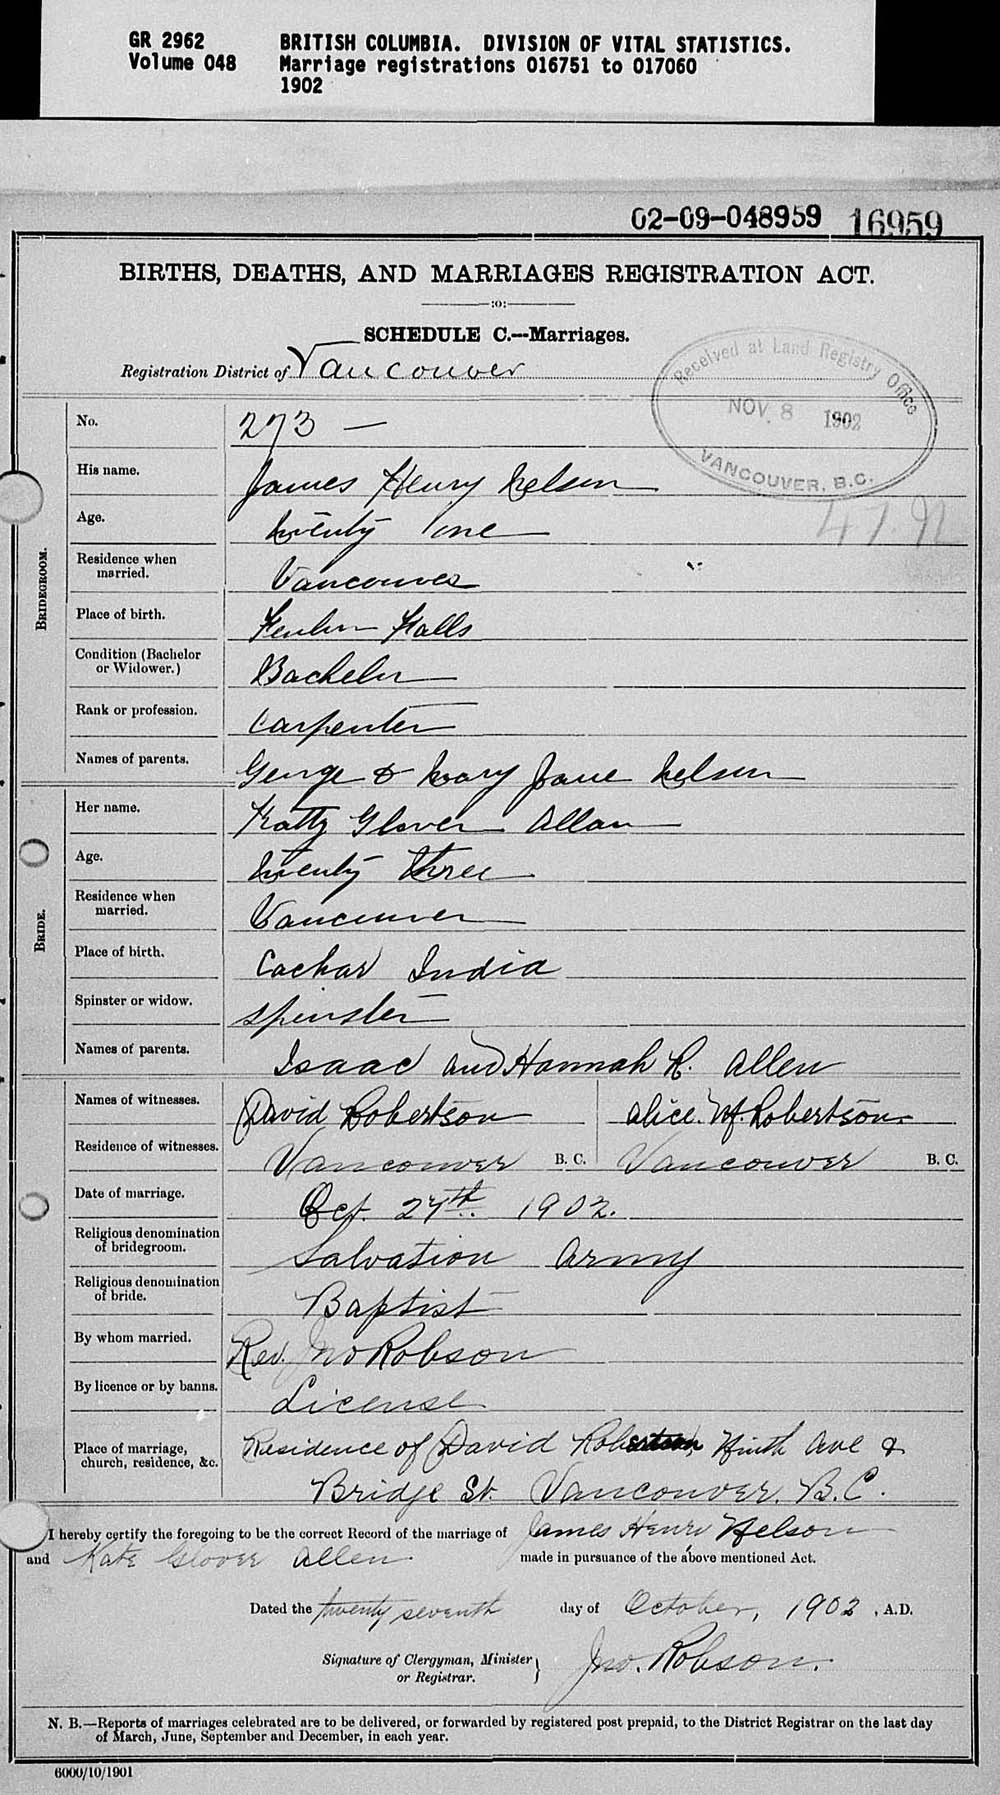 GR 2962 BRITISH COLUMBIA. DIVISION OF VITAL STATISTICS.
Volume 048 Marriage registrations 016751 to 017060
1902
02-09-048959 16959
BIRTHS, DEATHS, AND MARRIAGES REGISTRATION ACT.
:o:
SCHEDULE C.--Marriages.
Registration District of Vancouver
Received at Land Registry Office
NOV. 8 1902
VANCOUVER, B.C.
BRIDEGROOM.
No. 273 —
His name. James Henry Nelson
47.92
Age. twenty one
Residence when married. Vancouver
Place of birth. Fenlon Falls
Condition (Bachelor or Widower.) Bachelor
Rank or profession. Carpenter
Names of parents. George & Mary Jane Nelson
BRIDE.
Her name. Katty Glover Allan
Age. twenty three
Residence when married. Vancouver
Place of birth. Cachar India
Spinster or widow. spinster
Names of parents. Isaac and Hannah R. Allen
Names of witnesses. David Robertson Alice. M. Robertson
Residence of witnesses. Vancouver B. C. Vancouver B. C.
Date of marriage. Oct. 27th. 1902.
Religious denomination of bridegroom. Salvation Army
Religious denomination of bride. Baptist
By whom married. Rev. Jno Robson
By licence or by banns. License
Place of marriage, church, residence, &c. Residence of David Robertson, Ninth Ave &
Bridge St. Vancouver. B.C.
I hereby certify the foregoing to be the correct Record of the marriage of James Henry Nelson
and Kate Glover Allen made in pursuance of the above mentioned Act.
Dated the twenty seventh day of October, 1902 , A.D.
Signature of Clergyman, Minister or Registrar. } Jno. Robson.
N. B.—Reports of marriages celebrated are to be delivered, or forwarded by registered post prepaid, to the District Registrar on the last day
of March, June, September and December, in each year.
6000/10/1901